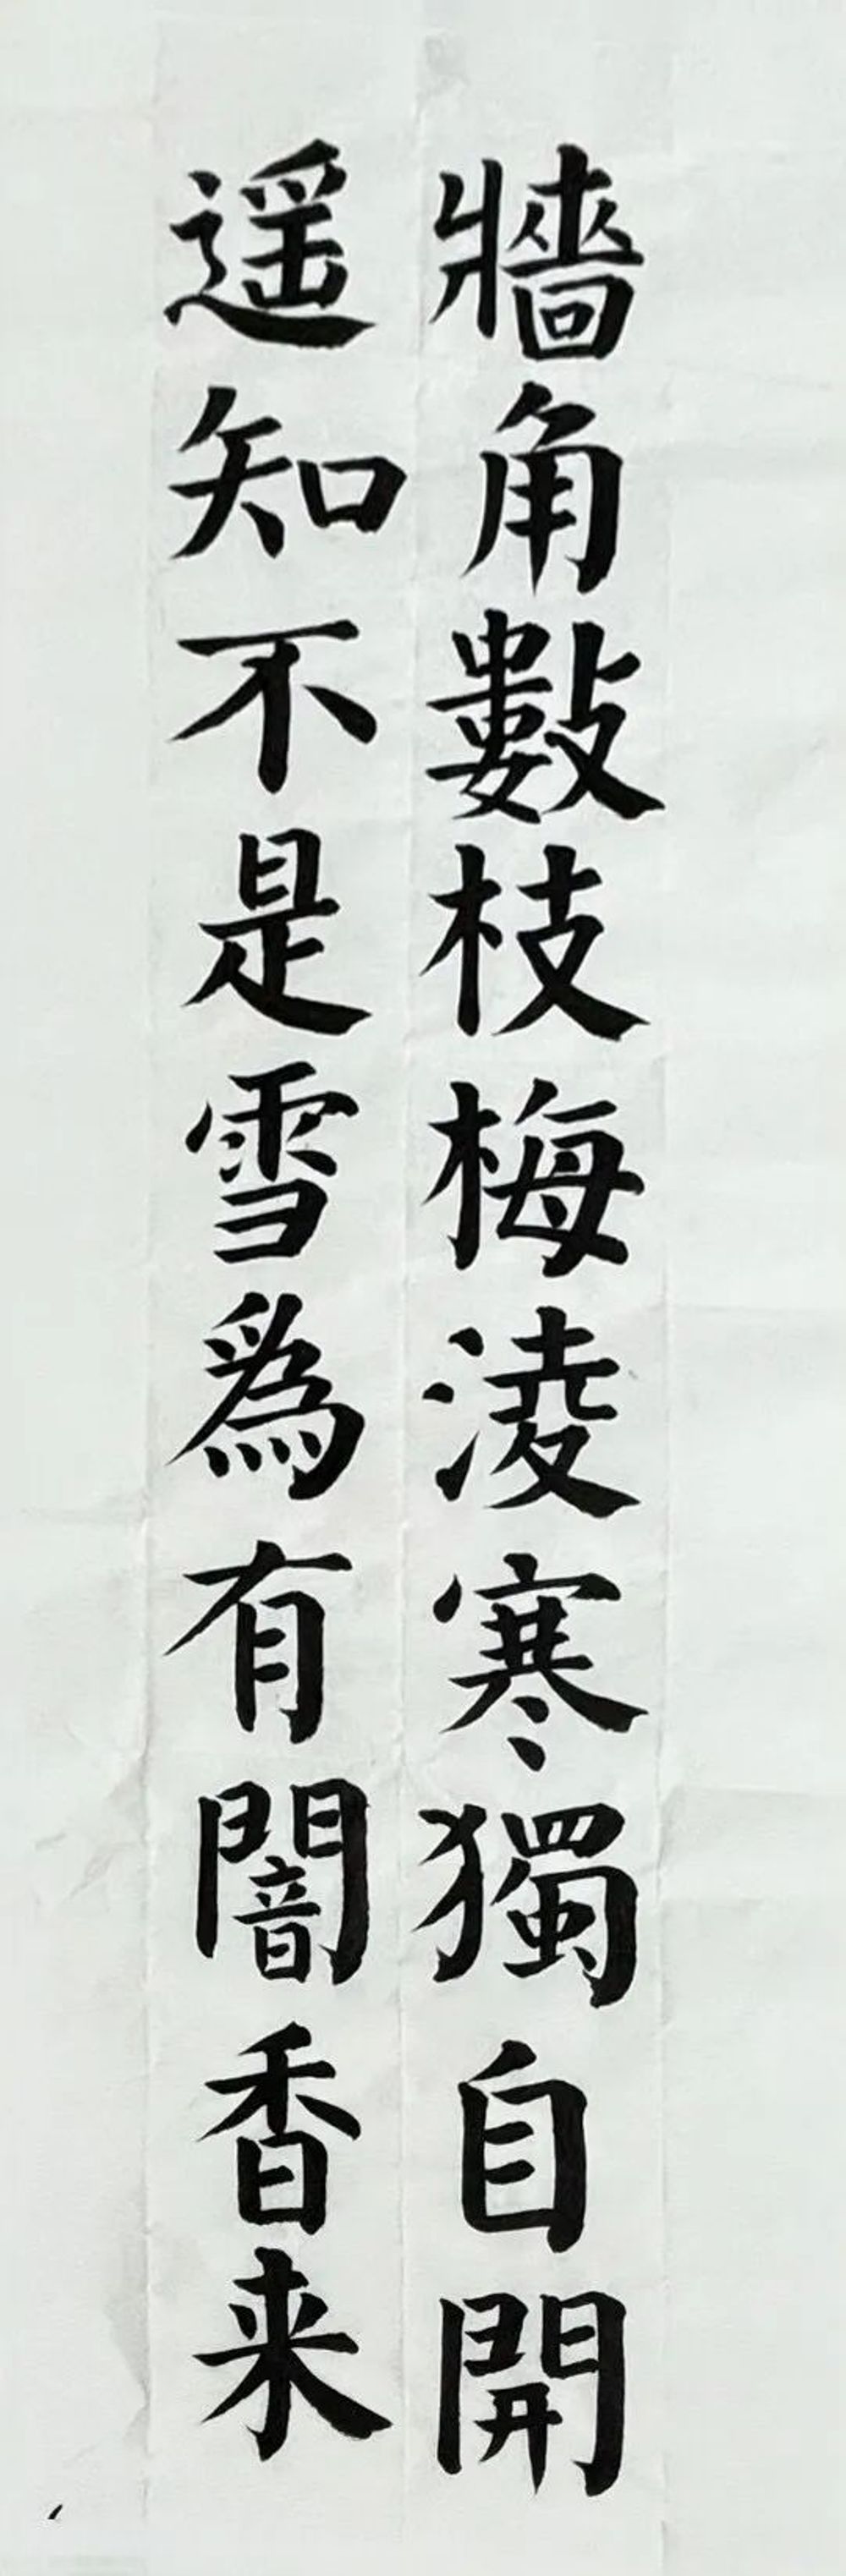 牆角數枝梅淩寒獨自開
遥知不是雪爲有闇香来